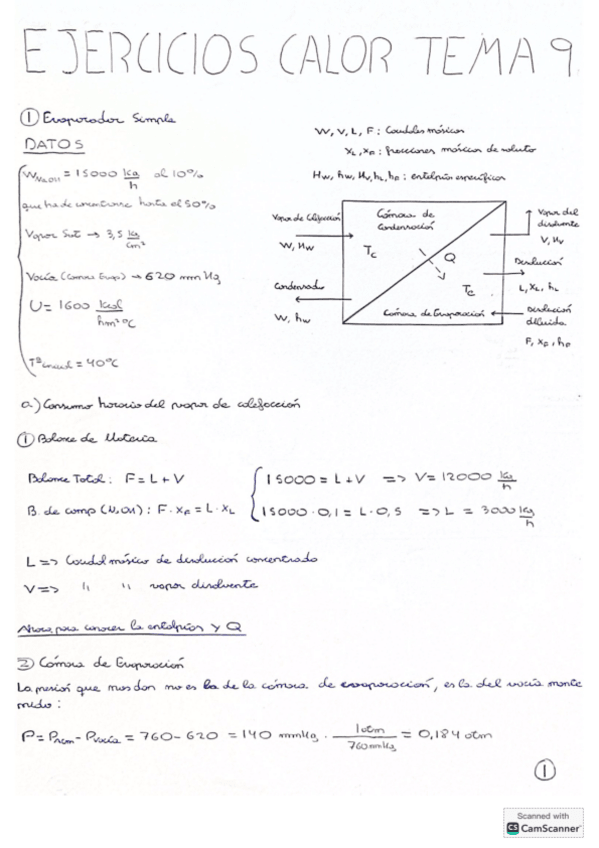 EJERCICIOS CALOR TEMA 9
① Evaporador Simple
DATOS
W NaOH = 15000 Kg/h al 10%
que ha de concentrarse hasta el 50%
Vapor Sat → 3,5 Kg/cm²
Vacío (Cámara Evap) → 620 mm Hg
U = 1600 Kcal/hm²°C
Tª inicial = 40°C
W, V, L, F: Caudales másicos
XL, XF: fracciones másicas de soluto
Hw, hw, Hv, hL, hF: entalpías específicas
Vapor de Calefacción
W, Hw
Condensado
W, hw
Cámara de Condensación
Tc
Q
Tc
Cámara de Evaporación
Vapor del disolvente
V, Hv
Disolución
L, XL, hL
Disolución diluida
F, XF, hF
a) Consumo horario del vapor de calefacción
① Balance de Materia
Balance Total: F = L + V
15000 = L + V => V = 12000 Kg/h
B. de comp (NaOH): F · XF = L · XL
15000 · 0,1 = L · 0,5 => L = 3000 Kg/h
L => Caudal másico de disolución concentrado
V => " " vapor disolvente
Ahora, para conocer la entalpías y Q
② Cámara de Evaporación
La presión que nos dan no es la de la cámara de evaporación, es la del vacío mante
nido:
P = Patm - Pvacío = 760 - 620 = 140 mmHg · 1 atm/760 mmHg = 0,184 atm
①
Scanned with
CS CamScanner